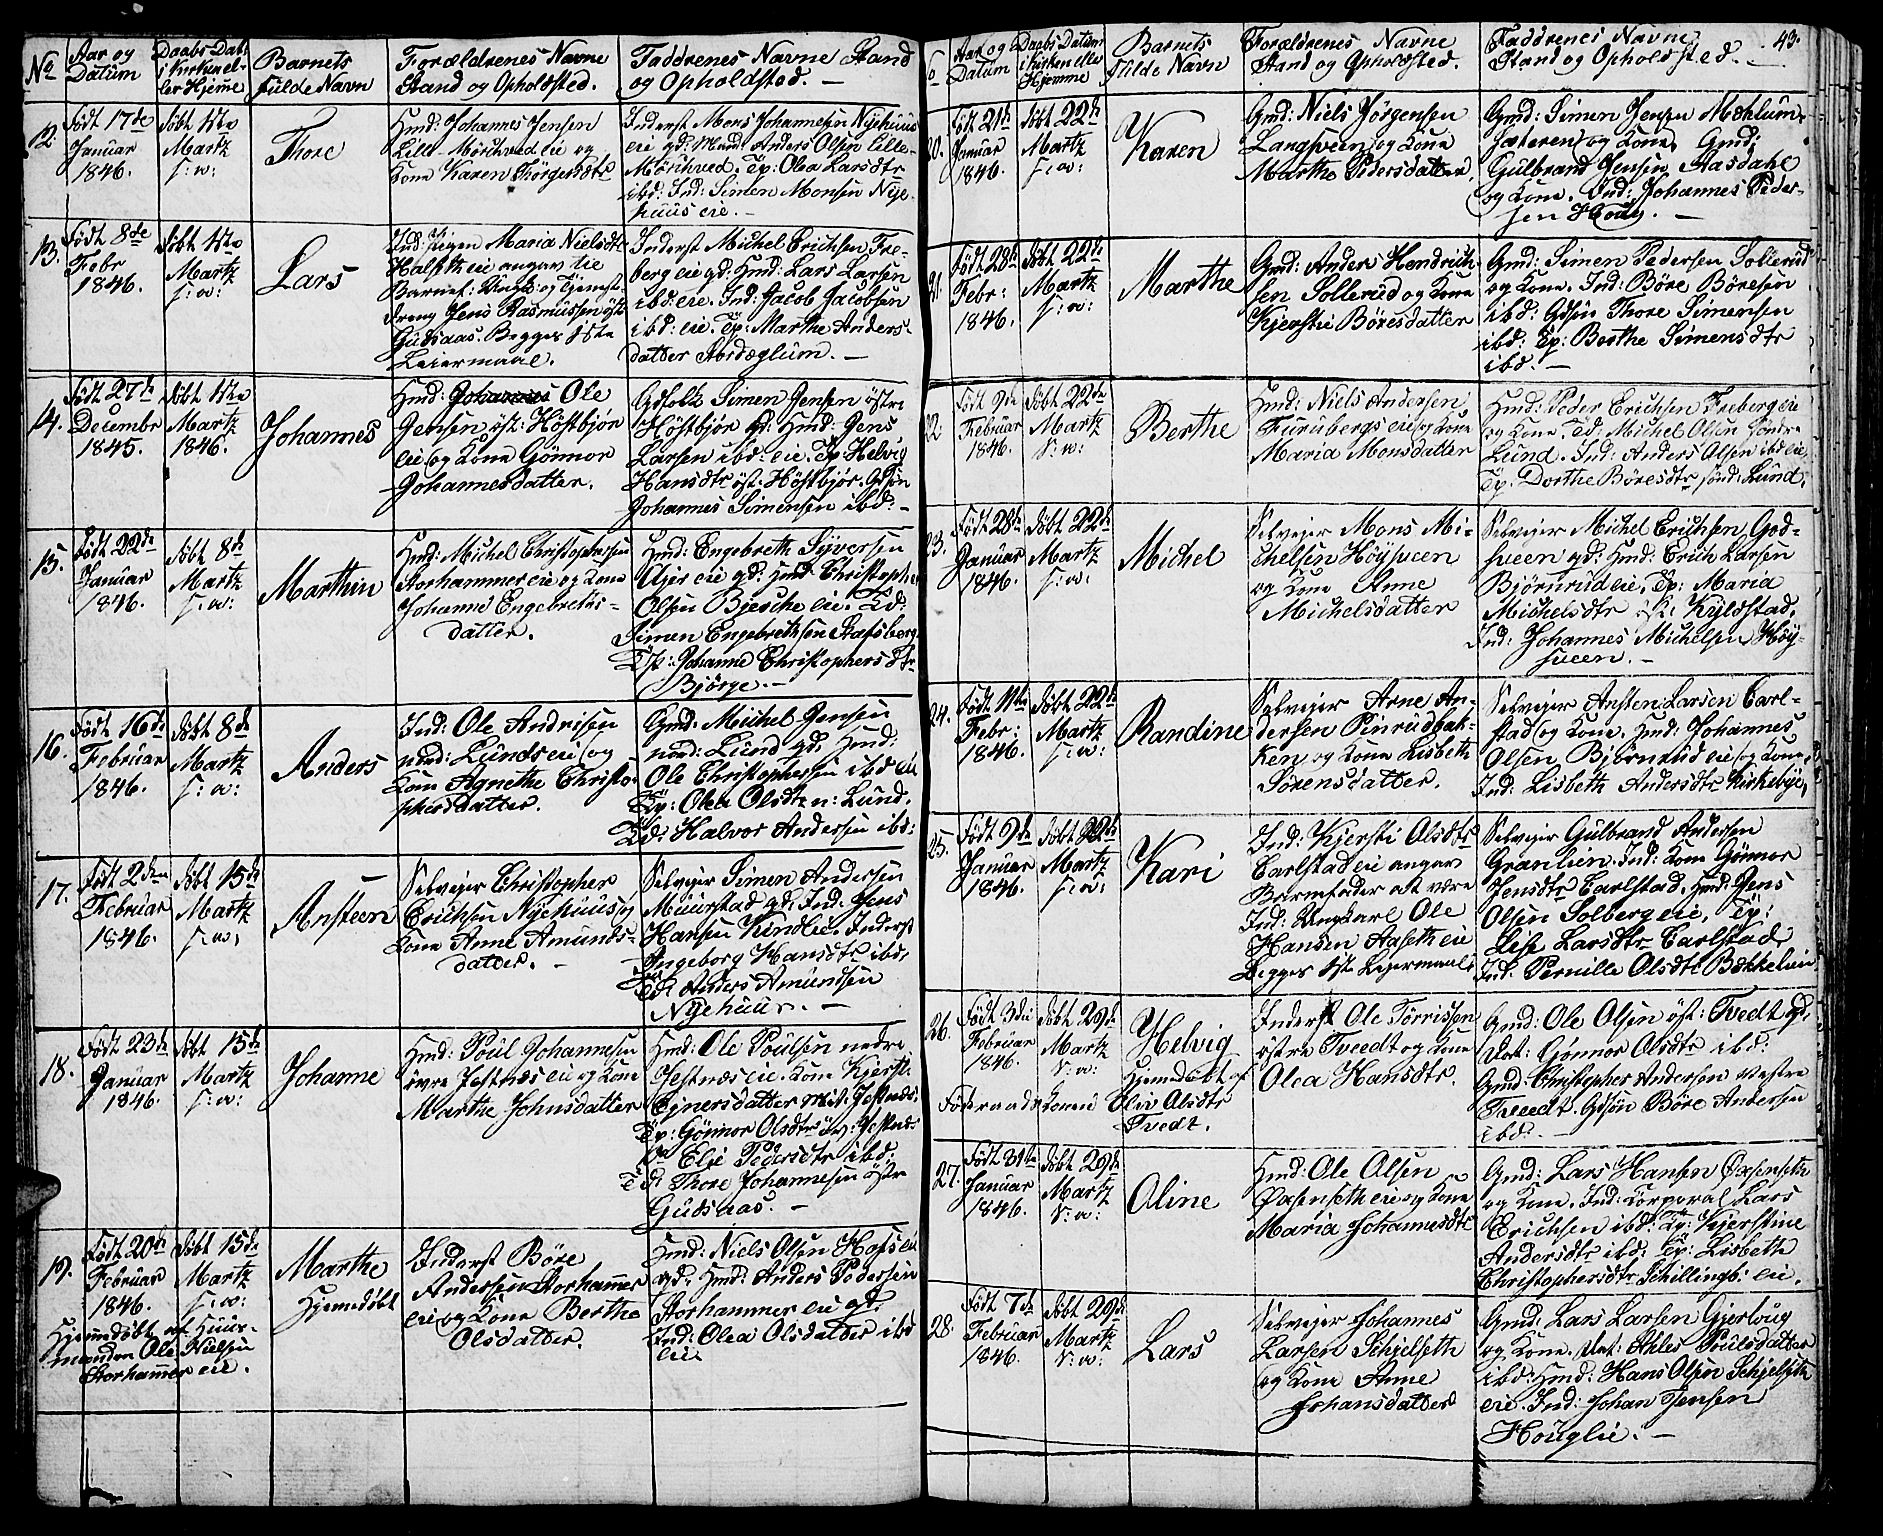 No
Aar og
Datum
Daabs Dat:
i Kirken el-
ler Hjeme
Barnets
fulde Navn
Forældrenes Navne
Stand og Opholdsted.
Faddrenes Navne Stand
og Opholdsted. —
12
Født 17de
Januar
1846.
Døbt 1ste
Martz
s: a:
Thore
Hmd: Johannes Jensen
Lille Mörchved eie og
Kone Karen Törgersdtr
Inderst Mons Johannesen Nyehuus
eie gd: Hmd: Anders Olsen Lille-
Mörchved. Tp: Olea Larsdtr
ibd: Ind: Simen Monsen Nye-
huus eie. —
13.
Født 8de
Febr
1846.
Døbt 1ste
Martz
s: a:
Lars
Ind: Pigen Maria Nielsdtr
eie angav til
Barnef: Ungk: og Tjenest-
dreng Jens Rasmussen öst
Gudsaas. Begges 1ste
Leiermaal.
Inderst Michel Erichsen Fre-
berg eie gd: Hmd: Lars Larsen
ibd: eie. Ind: Jacob Jacobsen
ibd: eie. Tp: Marthe Anders-
datter —
14.
Født 27de
Decembr
1845.
Døbt 1ste
Martz
1846.
Johannes
Hmd: Johannes Ole
Jensen öst: Höstbjör
eie og Kone Gönnor
Johannesdatter.
Gdfolk Simen Jensen östre
Höstbjör gd: Hmd: Jens
Larsen ibd: eie. Tp: Helvig
Hansdtr öst: Höstbjör. Gdsön
Johannes Simensen ibd: —
15.
Født 22de
Januar
1846.
Døbt 8de
Martz
s: a:
Marthin
Hmd: Michel Christophersen
Storhammer eie og Kone
Johanne Engebrets-
datter.
Hmd: Engebreth Syversen
Ajer eie gd: Hmd: Christopher
Olsen Bjerche eie. Td:
Simen Engebrethsen Stafsberg
Tp: Johanne Christophersdtr
Bjørge. —
16.
Født 16de
Februar
1846.
Døbt 8de
Martz
s: a:
Anders
Ind: Ole Andrisen
nord: Lunds eie og
Kone Agnethe Christo-
phersdatter.
Gmd: Michel Jensen
nord: Lund gd: Hmd:
Ole Christophersen ibd eie
Tp: Olea Olsdtr n: Lund.
Td: Halvor Andersen ibd:
17.
Født 2den
Februar
1846.
Døbt 15de
Martz
s: a:
Ansteen
Selvejer Christopher
Erichsen Nyehuus og
Kone Anne Amunds-
datter. —
Selvejer Simen Andersen
Muurstad gd: Ind: Jens
Hansen Kindlie. Inderst
Ingeborg Hansdtr ibd.
Td: Anders Amundsen
Nyehuus. —
18.
Født 23de
Januar
1846.
Døbt 15de
Martz
s: a:
Johanne
Hmd: Poul Johannesen
övre Jestnæs eie og Kone
Marthe Johnsdatter
Hmd: Ole Poulsen nedre
Jestnæs eie. Kone Kjersti
Ejnersdatter Jestnæs.
Tp: Gönnor Olsdtr öv: Jestnæs
Elie Pedersdtr ibd.
Td: Thore Johannesen östr
Gudsaas. —
19.
Født 20de
Februar
1846.
Hjemmedøbt af Huus-
manden Ole Nielsen
Storhammer eie.
Døbt 15de
Martz
s: a:
Marthe
Hjemmedøbt
Inderst Böre
Andersen Storhammer
eie og Kone Berthe
Olsdatter.
Hmd: Niels Olsen Hofs eie
gd. Hmd: Anders Pedersen
Storhammer eie gd.
Ind: Olea Olsdatter ibd
eie.
Aar og
Datum
Daabs Datum
i Kirken eller
Hjemme
Barnets
fulde Navn
Forældrenes Navne
Stand og Opholdsted.
Faddrenes Navne
Stand og Opholdsted. —
43.
20.
Født 21de
Januar
1846.
Døbt 22de
Martz
s: a:
Karen
Gmd: Niels Jörgensen
Langsveen og Kone
Marthe Pedersdatter
Gmd: Simen Jensen Mæhlum-
sæteren og Kone. Gmd:
Gulbrand Jensen Aasdahl
og Kone. Ind: Johannes Peder-
sen —
21.
Født 28de
Febr:
1846.
Døbt 22de
Martz
s: a:
Marthe
Gmd: Anders Hendrich-
sen Sollerud og Kone
Kjerstie Böresdatter
Gmd: Simen Pedersen Sollerud
og Kone. Ind: Böre Böresen
ibd: Gdsön Thore Simensen
ibd: Tp: Berthe Simensdtr
ibd: —
22
Født 9de
Februar
1846.
Døbt 22de
Martz
s: a:
Berthe
Hmd: Niels Andersen
Furubergs eie og Kone
Maria Monsdatter
Hmd: Peder Erichsen Freberg eie
og Kone. Td: Michel Olsen söndre
Lund. Ind: Anders Olsen ibd eie,
Tp: Dorthe Böresdtr sönd: Lund.
23.
Født 28de
Januar
1846.
Døbt 22de
Martz
s: a:
Michel
Selvejer Mons Mi-
chelsen Höysveen
og Kone Anne
Michelsdatter
Selvejer Michel Erichsen God-
sveen gd: Hmd: Erich Larsen
Björnrud eie, Tp: Maria
Michelsdtr Kyldstad,
Ind: Johannes Michelsen Höy-
sveen. —
24.
Født 11te
Febr:
1846.
Døbt 22de
Martz
s: a:
Randine
Selvejer Arne An-
dersen Pinrudbak-
ken og Kone Lisbeth
Sörensdatter.
Selvejer Ansten Larsen Carl-
stad og Kone. Hmd: Johannes
Olsen Björnrud eie og Kone,
Ind: Lisbeth Andersdtr Kirkebye,
25.
Født 9de
Januar
1846.
Døbt 22de
Martz
s: a:
Kari
Ind: Kjersti Olsdtr
Carlstad eie angav
Barnefader at være
Ind: Ungkarl Ole
Hansen Aaseth eie
Begges 1ste Lejermaal
Selvejer Gulbrand Andersen
Granlien. Ind: Kone Gönnor
Jensdtr Carlstad. Hmd: Jens
Olsen Solberg eie, Tp:
Lise Larsdtr Carlstad.
Ind: Pernille Olsdtr Bækkelien
26.
Født 3die
Februar
1846.
Døbt 29de
Martz
s: a:
Helvig
Hjemmedøbt af
Föderaads Konen Oliv Olsdtr
Tvedt.
Inderst Ole Törrissen
östre Tveedt og Kone
Olea Hansdtr.
Gmd: Ole Olsen öst: Tvedt gd.
Dat: Gönnor Olsdtr ibd:
Gmd: Christopher Andersen Vestre
Tveedt. Gdsön Böre Andersen
ibd: —
27.
Født 31te
Januar
1846.
Døbt 29de
Martz
s: a:
Oline
Hmd: Ole Olsen
Oxenseth eie og Kone
Maria Johannesdtr
Gmd: Lars Hansen Oxenseth
og Kone. Ind: Korporal Lars
Erichsen ibd: Tp: Kjerstine
Andersdtr ibd: Tp: Lisbeth
Christophersdtr Schillingb: eie.
28.
Født 7de
Februar
1846.
Døbt 29de
Martz
s: a:
Lars
Selvejer Johannes
Larsen Schjelseth
og Kone Anne
Johansdatter
Gmd: Lars Larsen Gjerlaug
og Kone. Dat: Ahles Poulsdatter
ibd: Hmd: Hans Olsen Schjelseth
eie. Ind: Johan Jensen
Houglie. —